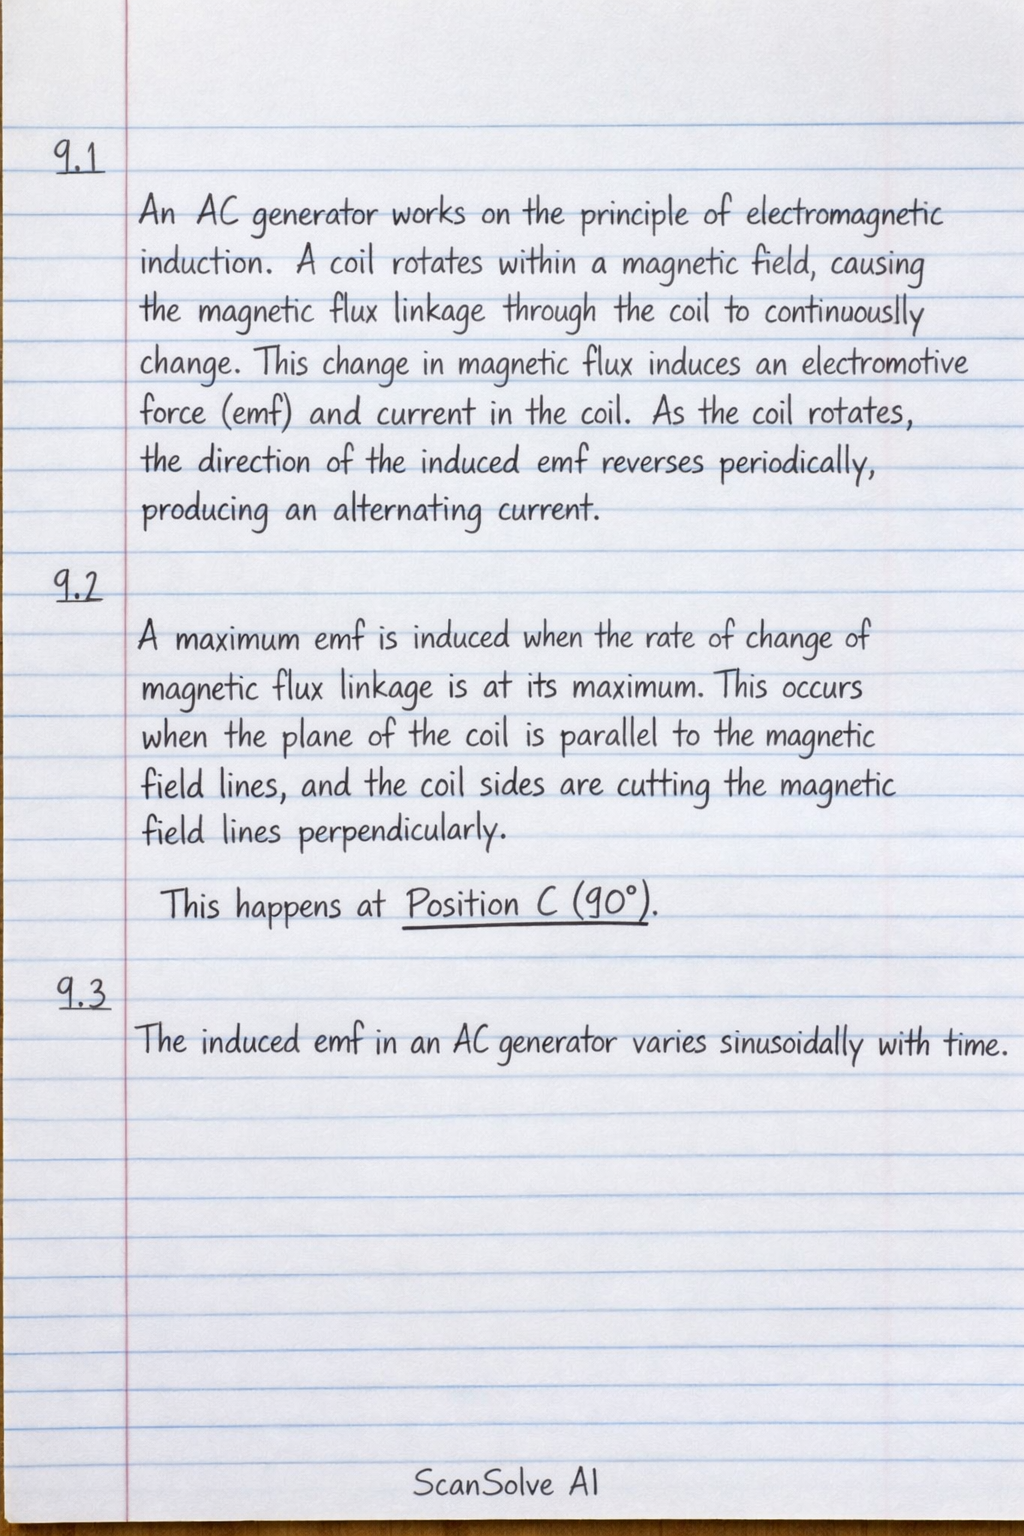 9.1
An AC generator works on the principle of electromagnetic
induction. A coil rotates within a magnetic field, causing
the magnetic flux linkage through the coil to continuouslly
change. This change in magnetic flux induces an electromotive
force (emf) and current in the coil. As the coil rotates,
the direction of the induced emf reverses periodically,
producing an alternating current.
9.2
A maximum emf is induced when the rate of change of
magnetic flux linkage is at its maximum. This occurs
when the plane of the coil is parallel to the magnetic
field lines, and the coil sides are cutting the magnetic
field lines perpendicularly.
This happens at Position C (90°).
9.3
The induced emf in an AC generator varies sinusoidally with time.
ScanSolve AI